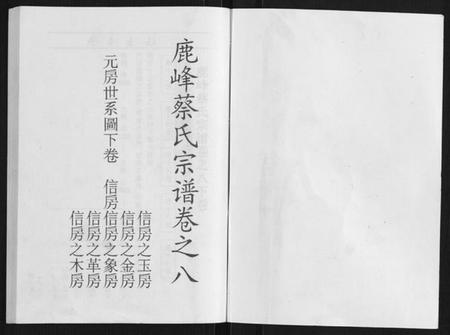 鹿峰蔡氏宗谱卷之八
信房之玉房
信房之金房
元房世系圖下卷 信房信房之象房
信房之革房
信房之木房